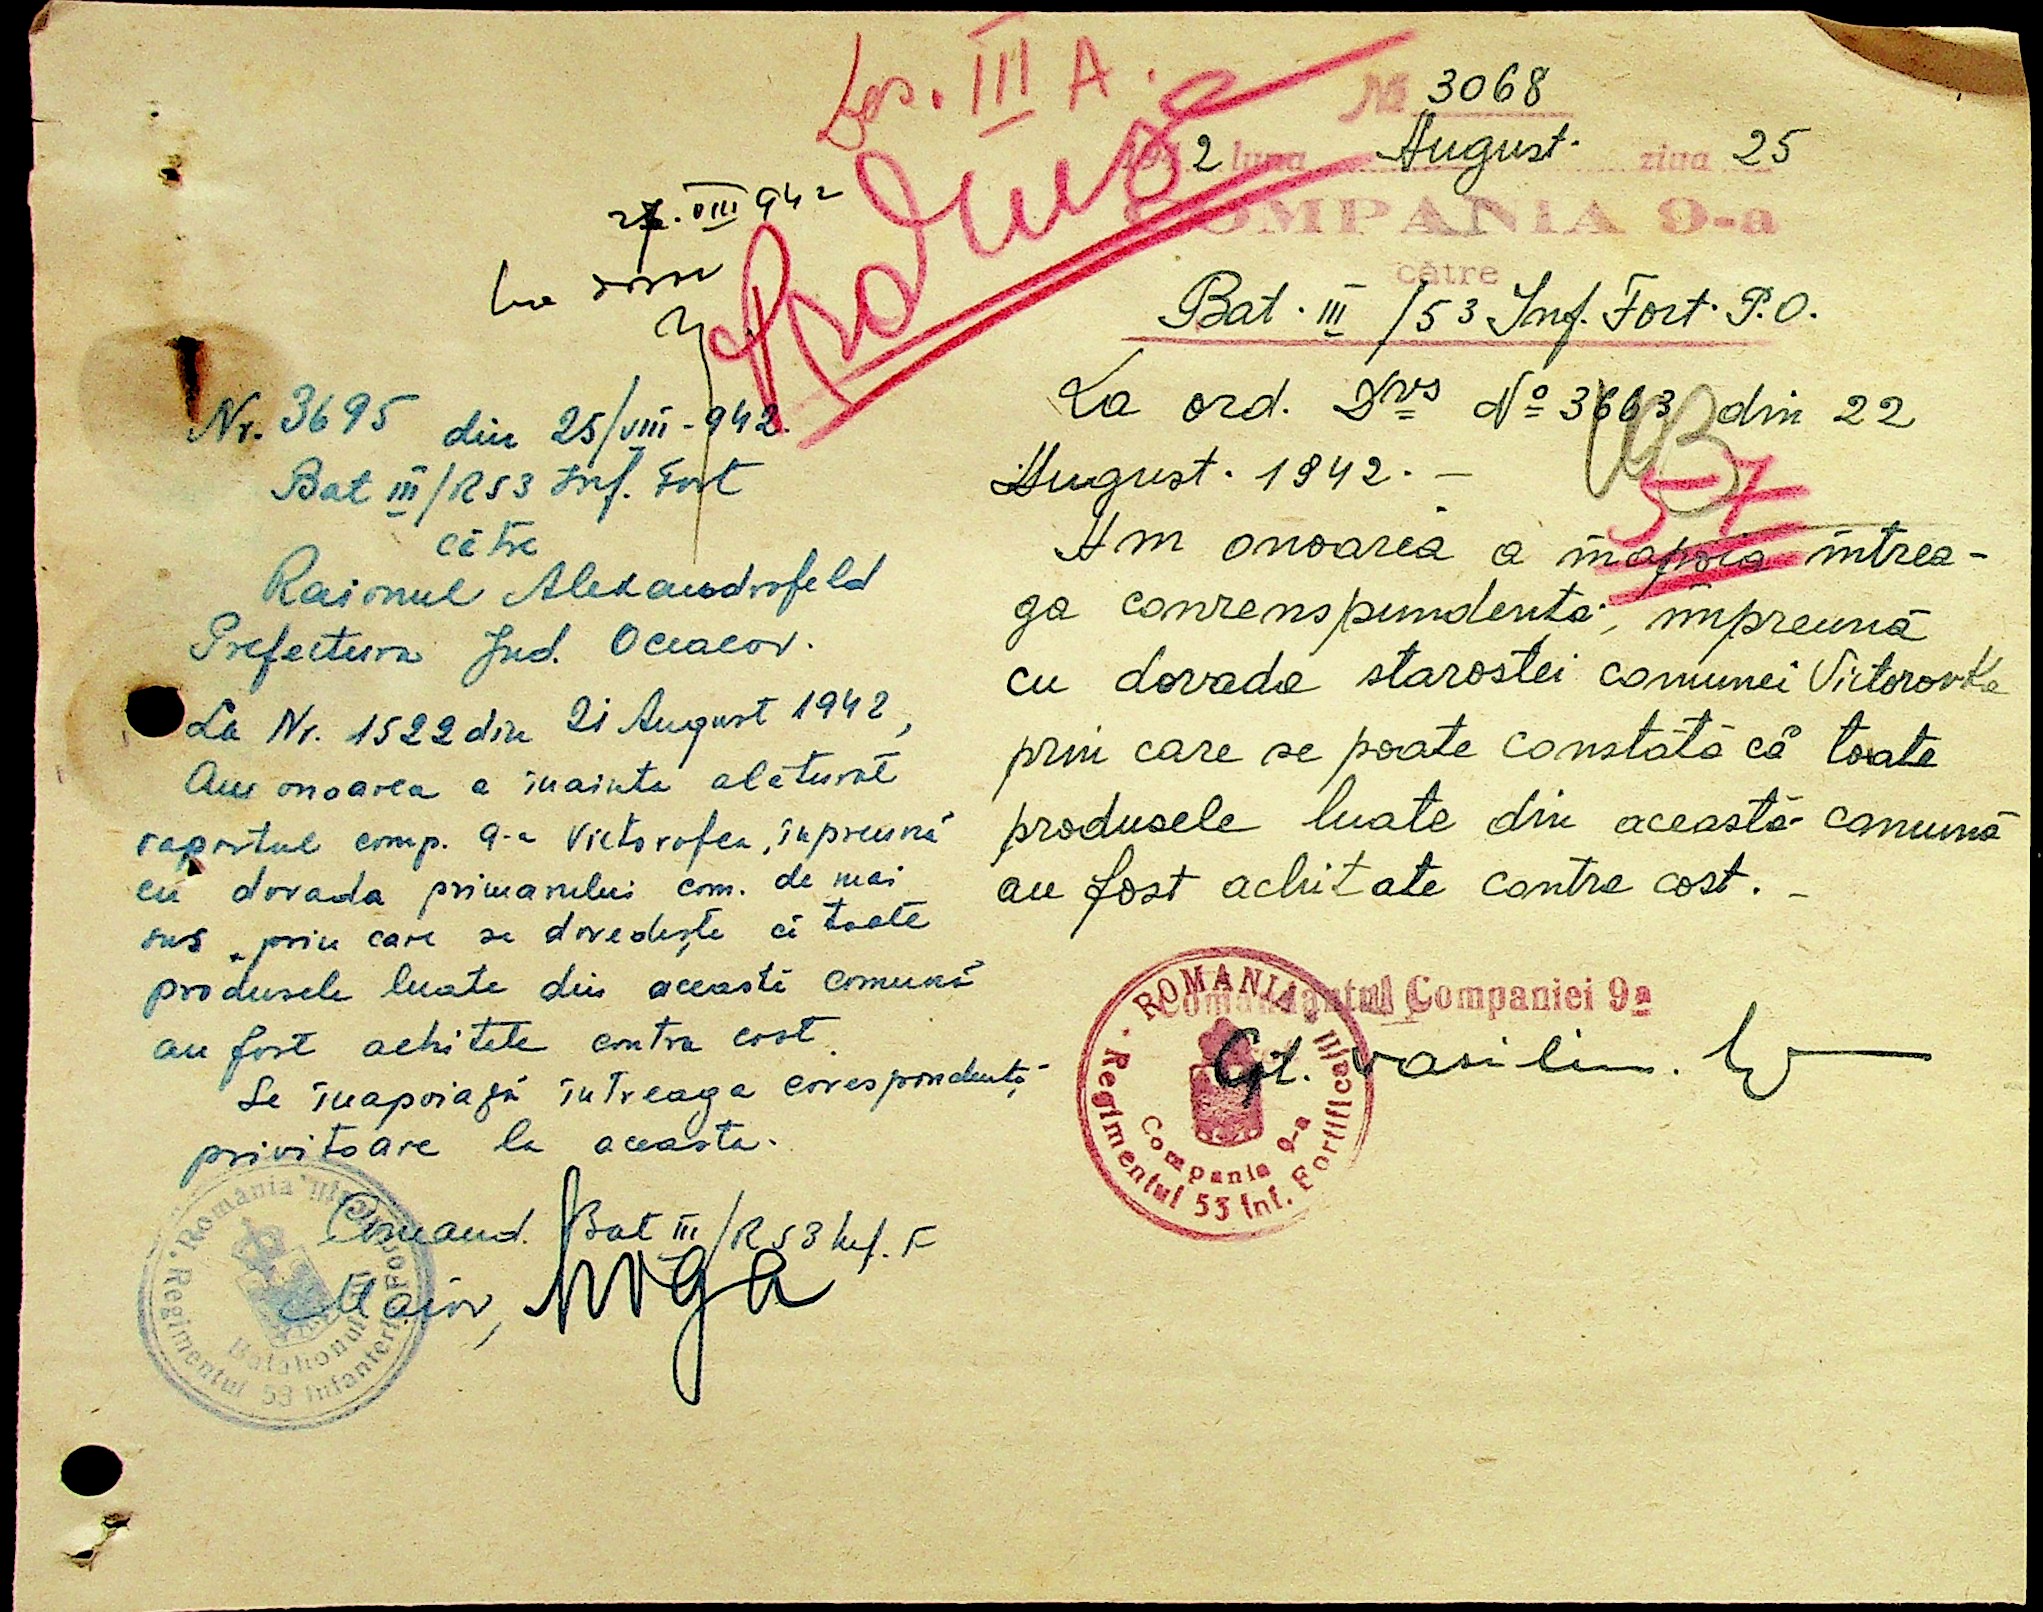 Dos. III A.
Produse
27.VIII 942
La dosar
Nr. 3695 din 25/VIII-942.
Bat III/R53 Inf. Fort
către
Raionul Alexandrofeld
Prefectura Jud. Oceacov.
La Nr. 1522 din 21 August 1942,
Am onoarea a înainta alăturat
raportul comp. 9-a Victorofca, înpreună
cu dovada primarului com. de mai
sus, prin care se dovedește că toate
produsele luate din această comună
au fost achitate contra cost.
Se înapoiază întreaga corespondență
privitoare la aceasta.
Comand. Bat III/R53 Inf. F
Maior,
România
Regimentul 53 Infanterie Fortificații
Batalionul III
№ 3068
1942 luna August. ziua 25
COMPANIA 9-a
către
Bat. III /53 Inf. Fort. P.O.
La ord. Dvs № 3663 din 22
August. 1942. -
57
Am onoarea a inapoia intrea-
ga conrenspundenta, impreună
cu dovada starostei comunei Victorovka
prin care se poate constată că toate
produsele luate din această comună
au fost achitate contra cost. -
Comandantul Companiei 9a
Cpt. Vasiliu.
ROMANIA
Regimentul 53 Inf. Fortificații
Compania 9-a